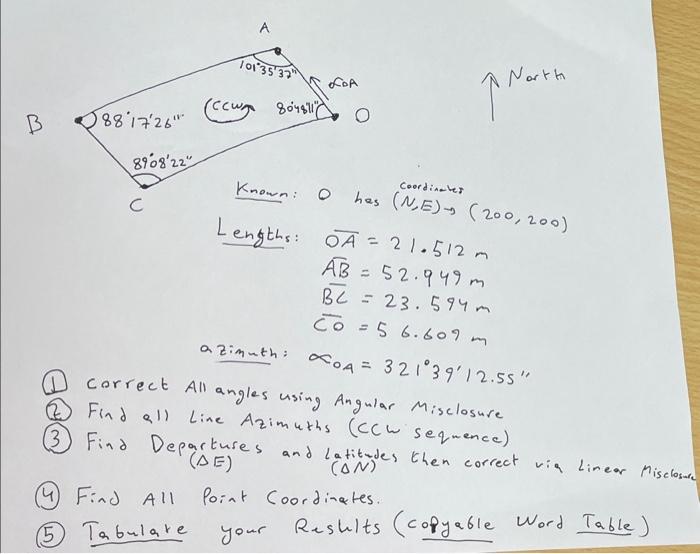 A
101°35'37"
αOA
North
80°48'11"
O
B
88°17'26"
CCW
89°08'22"
C
Coordinates
Known: O has (N,E) → (200, 200)
Lengths: OA = 21.512 m
AB = 52.949 m
BC = 23.594 m
CO = 56.609 m
azimuth: αOA = 321°39'12.55"
① Correct All angles using Angular Misclosure
② Find all Line Azimuths (CCW sequence)
③ Find Departures and Latitudes then correct via Linear Misclosure
(ΔE) (ΔN)
④ Find All Point Coordinates.
⑤ Tabulate your Results (copyable Word Table)